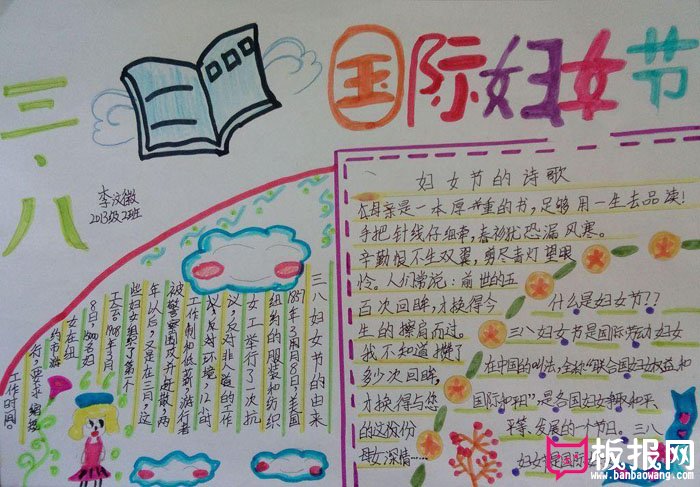 三·八
国际妇女节
李汶徽
2013级2班
三八妇女节的由来
1857年3月8日,美国
纽约的服装和纺织
女工举行了一次抗
议,反对非人道的工作
环境,12小时
工作制和低薪。游行者
被警察围攻并赶散,两
年以后,又是在三月,这
些妇女组织了第一个
工会。1908年3月
8日,1500名妇
女在纽
约市游
行,要求缩短
工作时间。
妇女节的诗歌
母亲是一本厚重的书,足够用一生去品读!
手把针线仔细牵,春衫犹恐漏风寒。
辛勤恨不生双翼,剪尽青灯望眼
怜。人们常说:前世的五
百次回眸,才换得今
生的擦肩而过。
我不知道攒了
多少次回眸,
才换得与您
的这份
母女深情……
什么是妇女节??
三八妇女节是国际劳动妇女
在中国的叫法,全称"联合国妇女权益和
国际和平",是各国妇女争取和平、
平等、发展的一个节日。三八
妇女节是国际
板报网
www.banbaowang.com